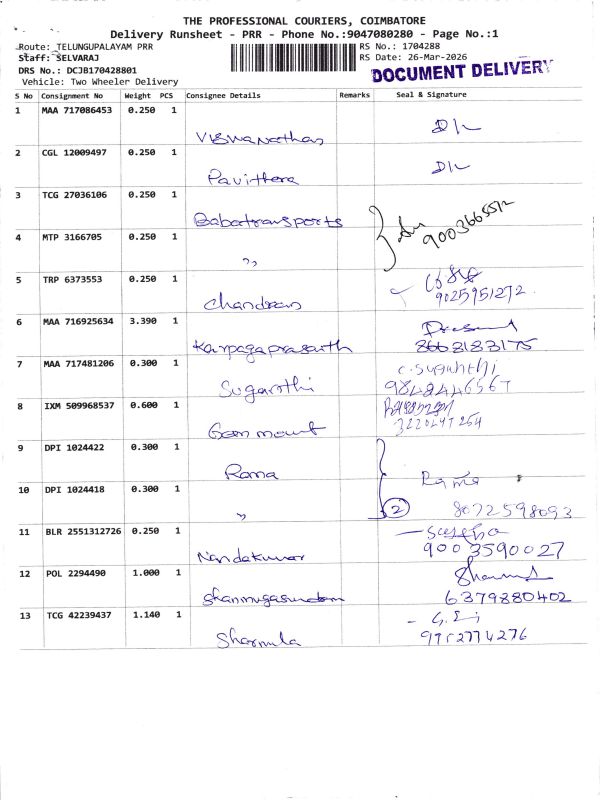 THE PROFESSIONAL COURIERS, COIMBATORE
Delivery Runsheet - PRR - Phone No.:9047080280 - Page No.:1
Route: TELUNGUPALAYAM PRR
Staff: SELVARAJ
DRS No.: DCJB170428801
Vehicle: Two Wheeler Delivery
RS No.: 1704288
RS Date: 26-Mar-2026
DOCUMENT DELIVERY
S No Consignment No Weight PCS Consignee Details Remarks Seal & Signature
1 MAA 717086453 0.250 1
Viswanathan D/L
2 CGL 12009497 0.250 1
Pavithra D/L
3 TCG 27036106 0.250 1
Babatransports
4 MTP 3166705 0.250 1
〃
5 TRP 6373553 0.250 1
Chandran 9025951272
6 MAA 716925634 3.390 1
Karpagaprasanth 8668183175
7 MAA 717481206 0.300 1
Suganthi C. Suganthi
9848446567
8 IXM 509968537 0.600 1
9 DPI 1024422 0.300 1
Rama Rama
10 DPI 1024418 0.300 1
〃 2 8072598093
11 BLR 2551312726 0.250 1
Nandakumar 9003590027
12 POL 2294490 1.000 1
Shanmugasundaram 6379880402
13 TCG 42239437 1.140 1
Sharmila